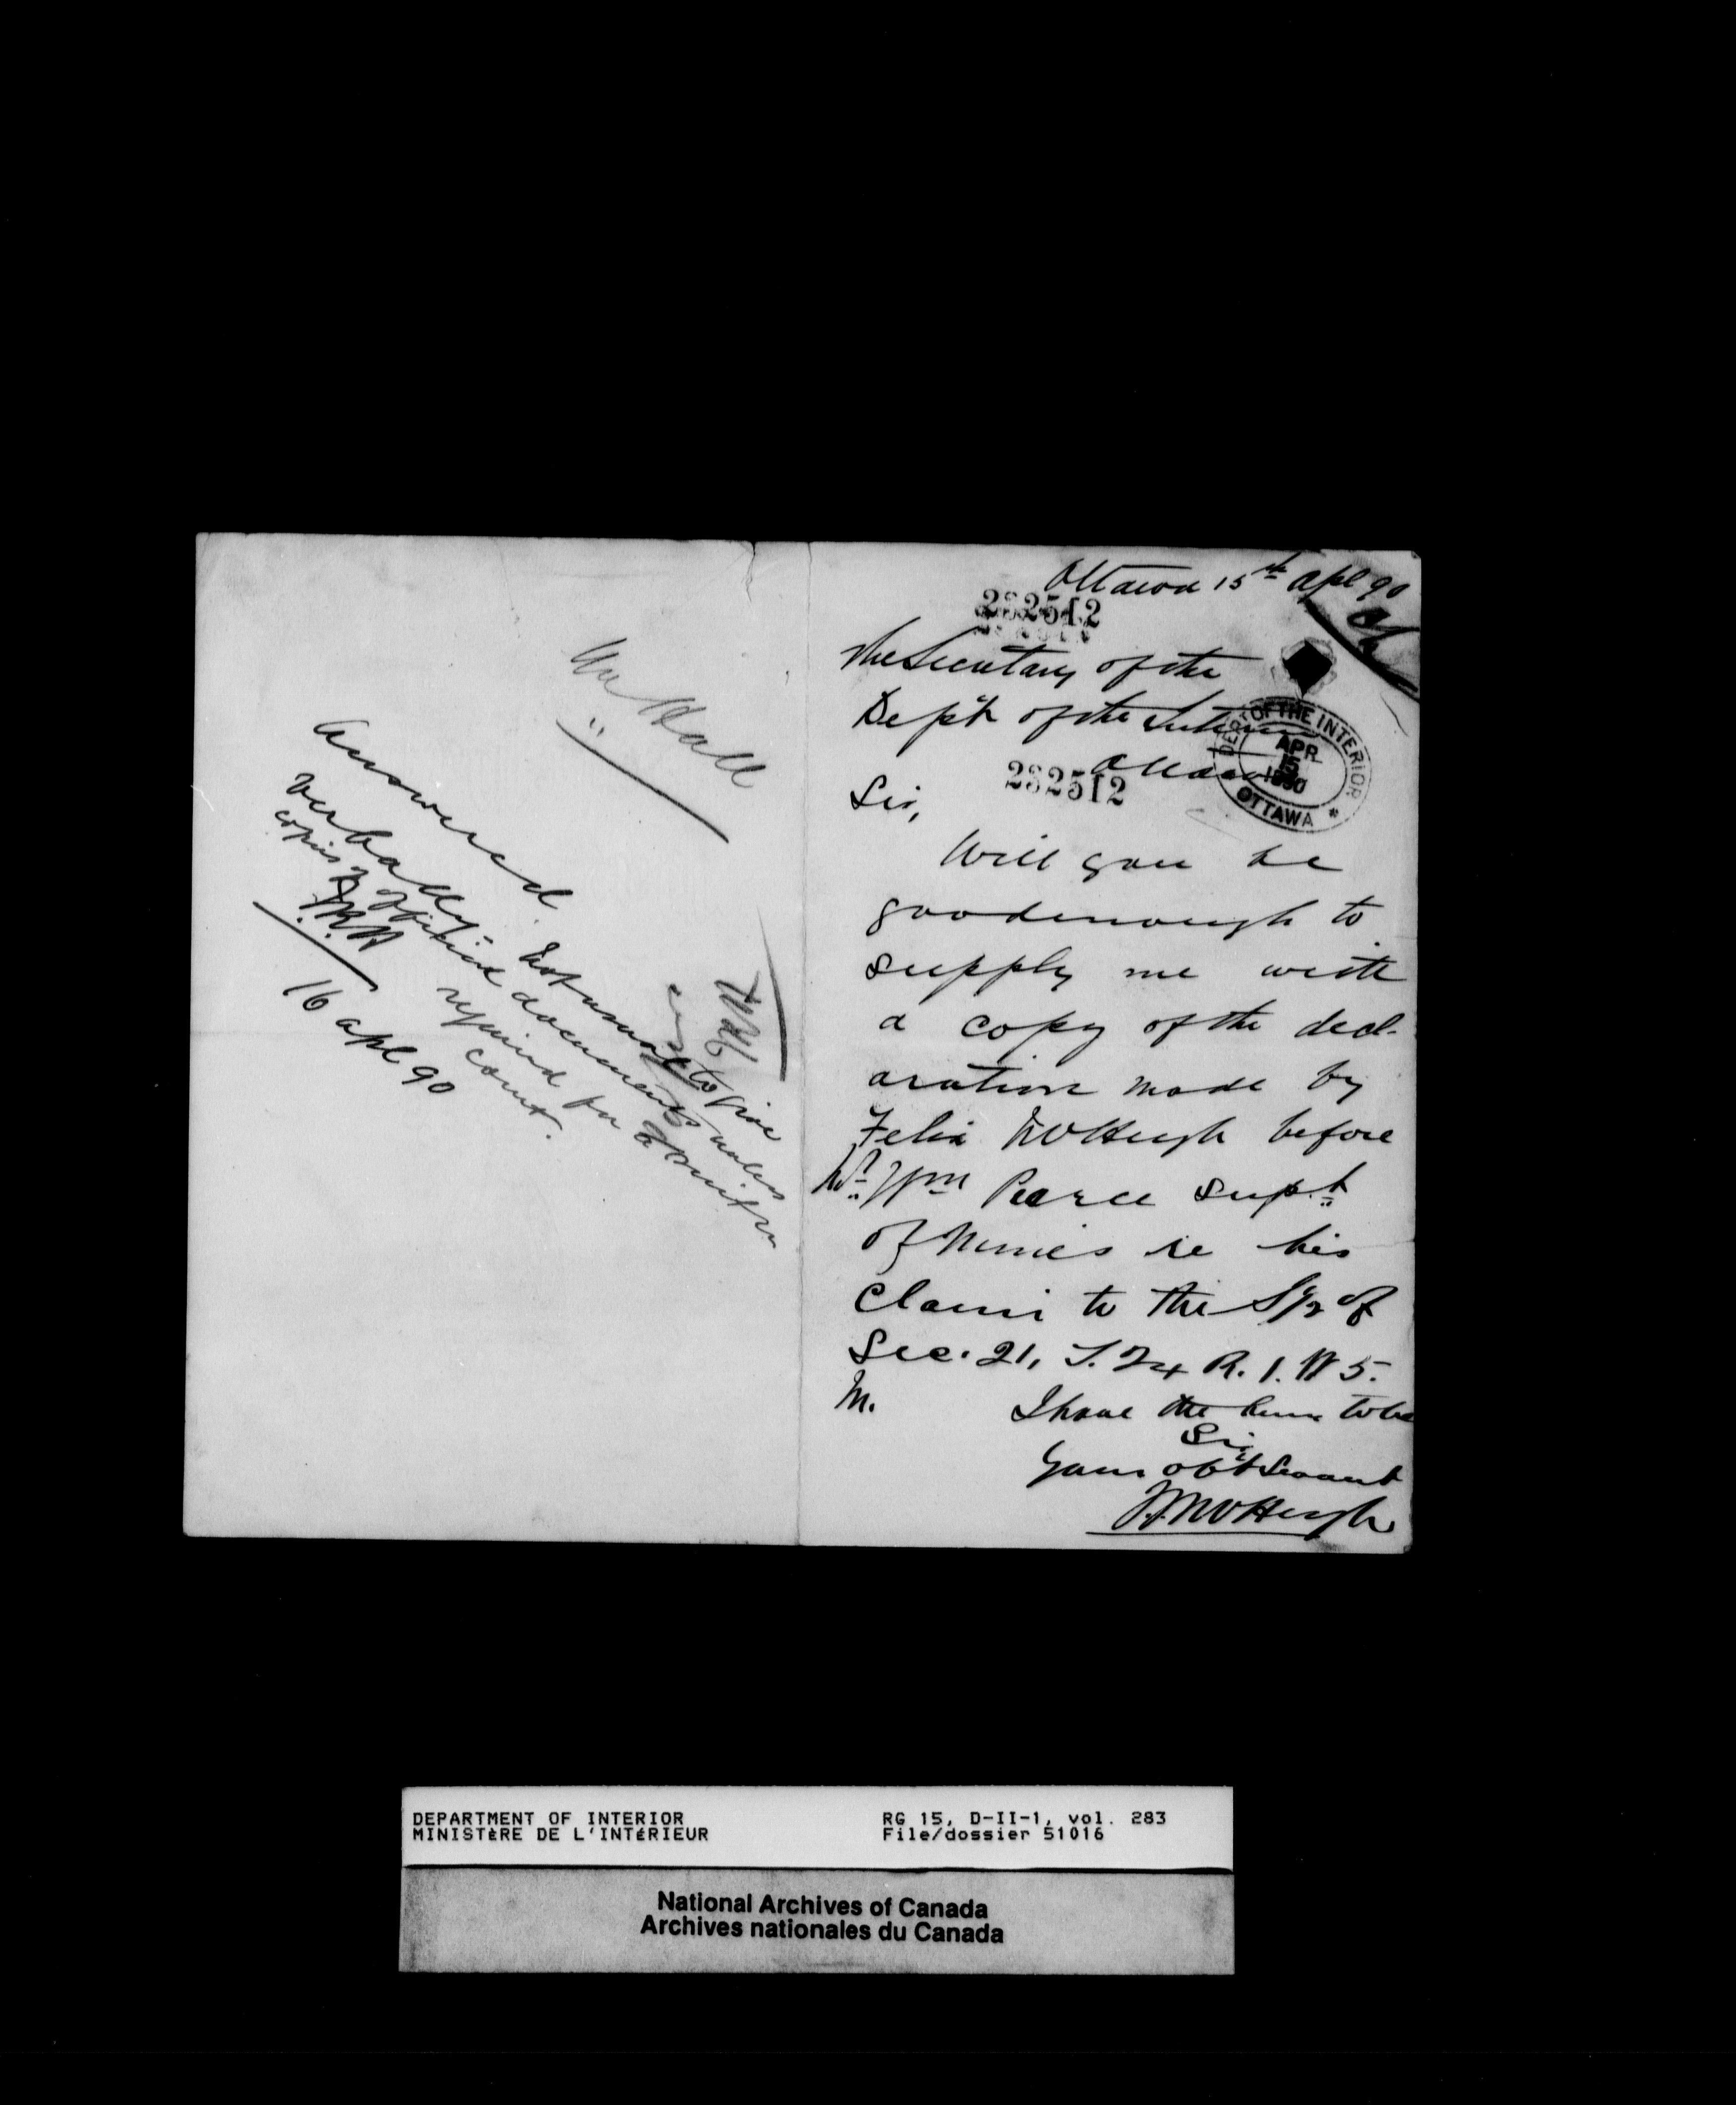 Mr Hall
Answered
verbally - Not usual to give
copies of official documents unless
required for a suit in
court.
16 apl 90
Ottawa 15th Apl 90
232512
The Secretary of the
Dep't of the Interior
Ottawa
232512
DEPT OF THE INTERIOR
APR
15
1890
OTTAWA
Sir,
Will you be
good enough to
supply me with
a copy of the decl-
aration made by
Felix McHugh before
Mr Wm Pearce Supt
of Mines re his
Claim to the S 1/2 of
Sec. 21, T. 24 R. 1. W 5.
M.
I have the honr to be
Sir
Your obt Servant
McHugh
DEPARTMENT OF INTERIOR
MINISTÈRE DE L'INTÉRIEUR
RG 15, D-II-1, vol. 283
File/dossier 51016
National Archives of Canada
Archives nationales du Canada